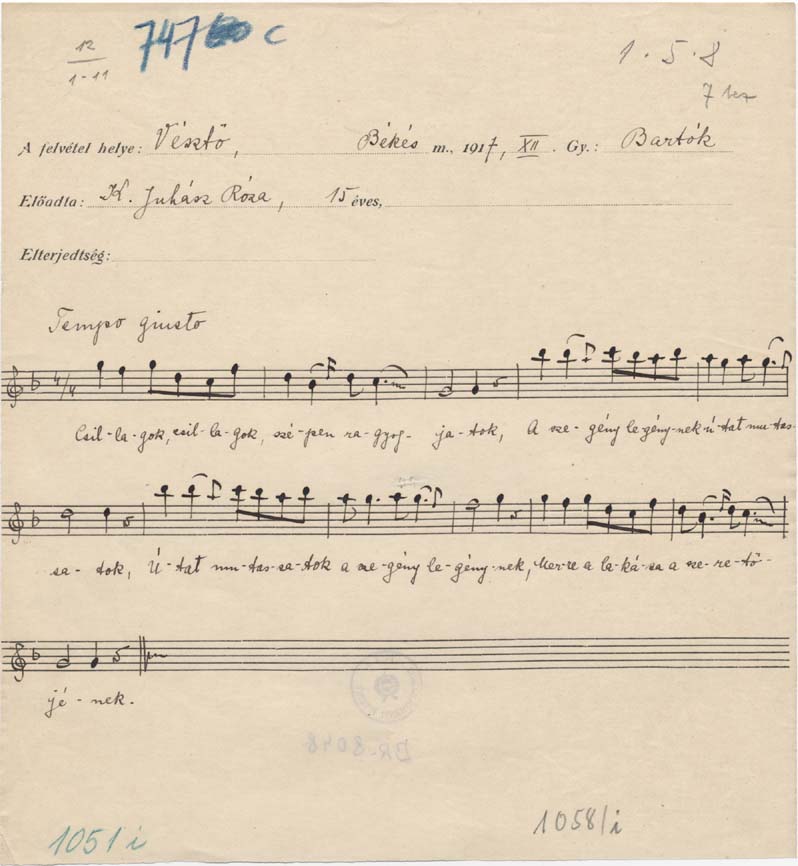 12
1-11
747 c
1.5.8
7
A felvétel helye: Vésztő, Békés m., 1917, XII. Gy.: Bartók
Előadta: K. Juhász Róza, 15 éves,
Elterjedtség:
Tempo giusto
4/4
Csil-la-gok, csil-la-gok, szé-pen ra-gyog-ja-tok, A sze-gény le-gény-nek ú-tat mu-tas-
sa-tok, Ú-tat mu-tas-sa-tok a sze-gény le-gény-nek, Mer-re a la-ká-sa a sze-re-tő-
jé-nek.
BR-8048
1051 i
1058/i